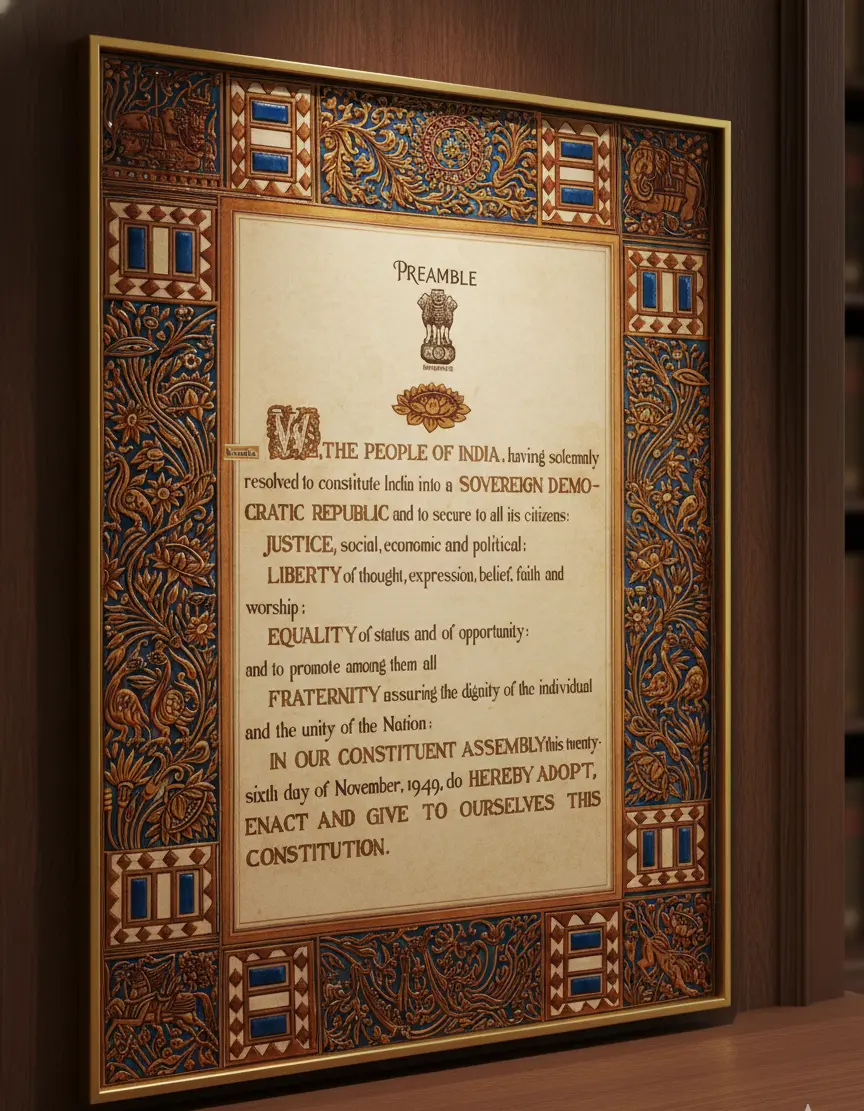 PREAMBLE
WE, THE PEOPLE OF INDIA, having solemnly
resolved to constitute India into a SOVEREIGN DEMO-
CRATIC REPUBLIC and to secure to all its citizens:
JUSTICE, social, economic and political;
LIBERTY of thought, expression, belief, faith and
worship;
EQUALITY of status and of opportunity;
and to promote among them all
FRATERNITY assuring the dignity of the individual
and the unity of the Nation;
IN OUR CONSTITUENT ASSEMBLY this twenty-
sixth day of November, 1949, do HEREBY ADOPT,
ENACT AND GIVE TO OURSELVES THIS
CONSTITUTION.